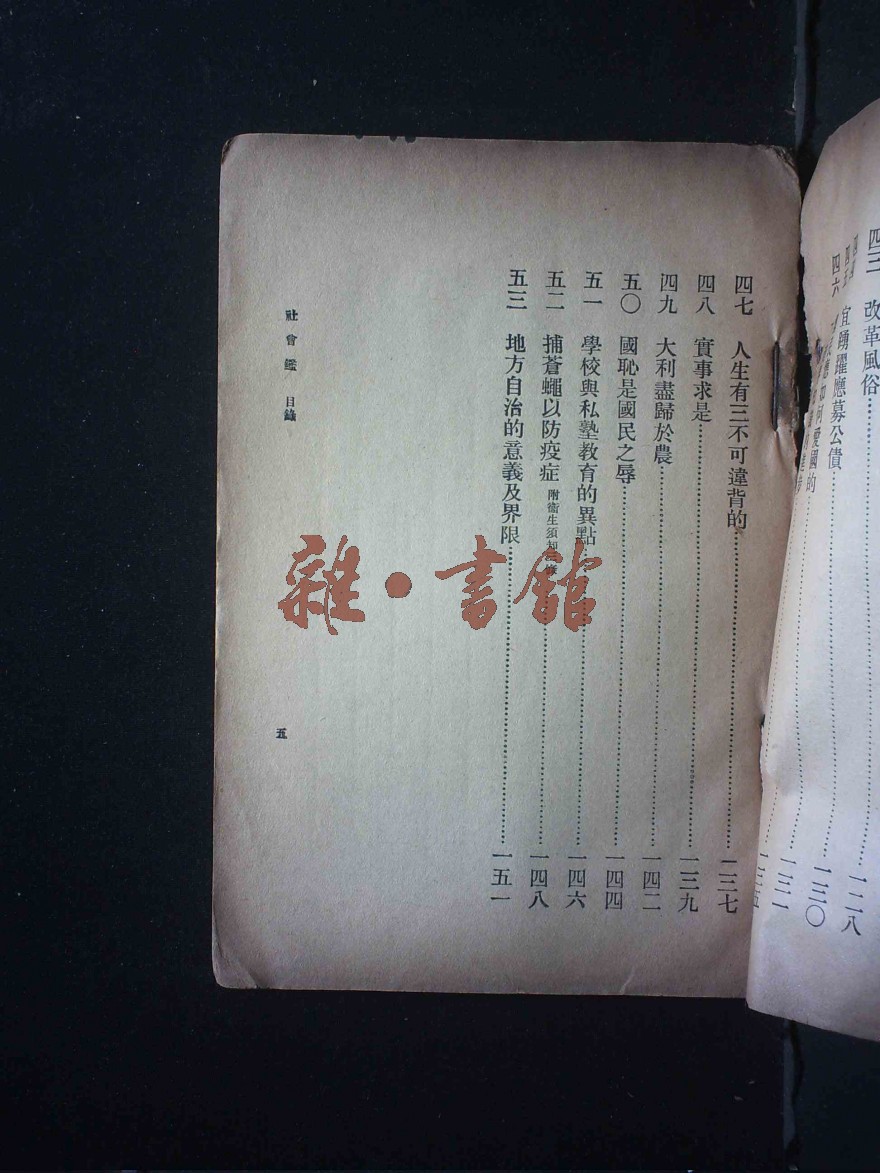 四三 改革風俗 一二八
宜踴躍應募公債 一三〇
四六 如何愛國的 一三一
四七 人生有三不可違背的 一三七
四八 實事求是 一三九
四九 大利盡歸於農 一四二
五〇 國恥是國民之辱 一四四
五一 學校與私塾教育的異點 一四六
五二 捕蒼蠅以防疫症 附衞生須知 一四八
五三 地方自治的意義及界限 一五一
社會鑑 目錄
五
雜·書館